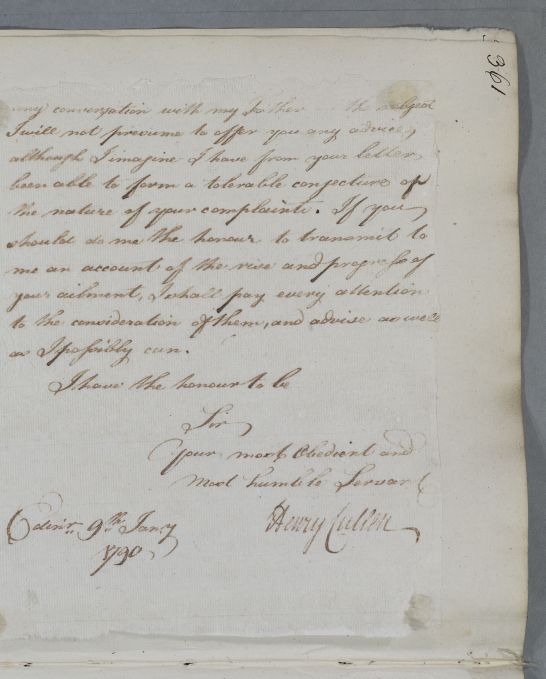 361
any conversation with my Father the subject
I will not presume to offer you any advice,
although I imagine I have from your letter
been able to form a tolerable conjecture of
the nature of your complaints. If you
should do me the honour to transmit to
me an account of the rise and progress of
your ailment, I shall pay every attention
to the consideration of them, and advise as well
as I possibly can.
I have the honour to be
Sir
Your most Obedient and
Most humble Servant
Edenr. 9th. Jany
1790
Henry Cullen